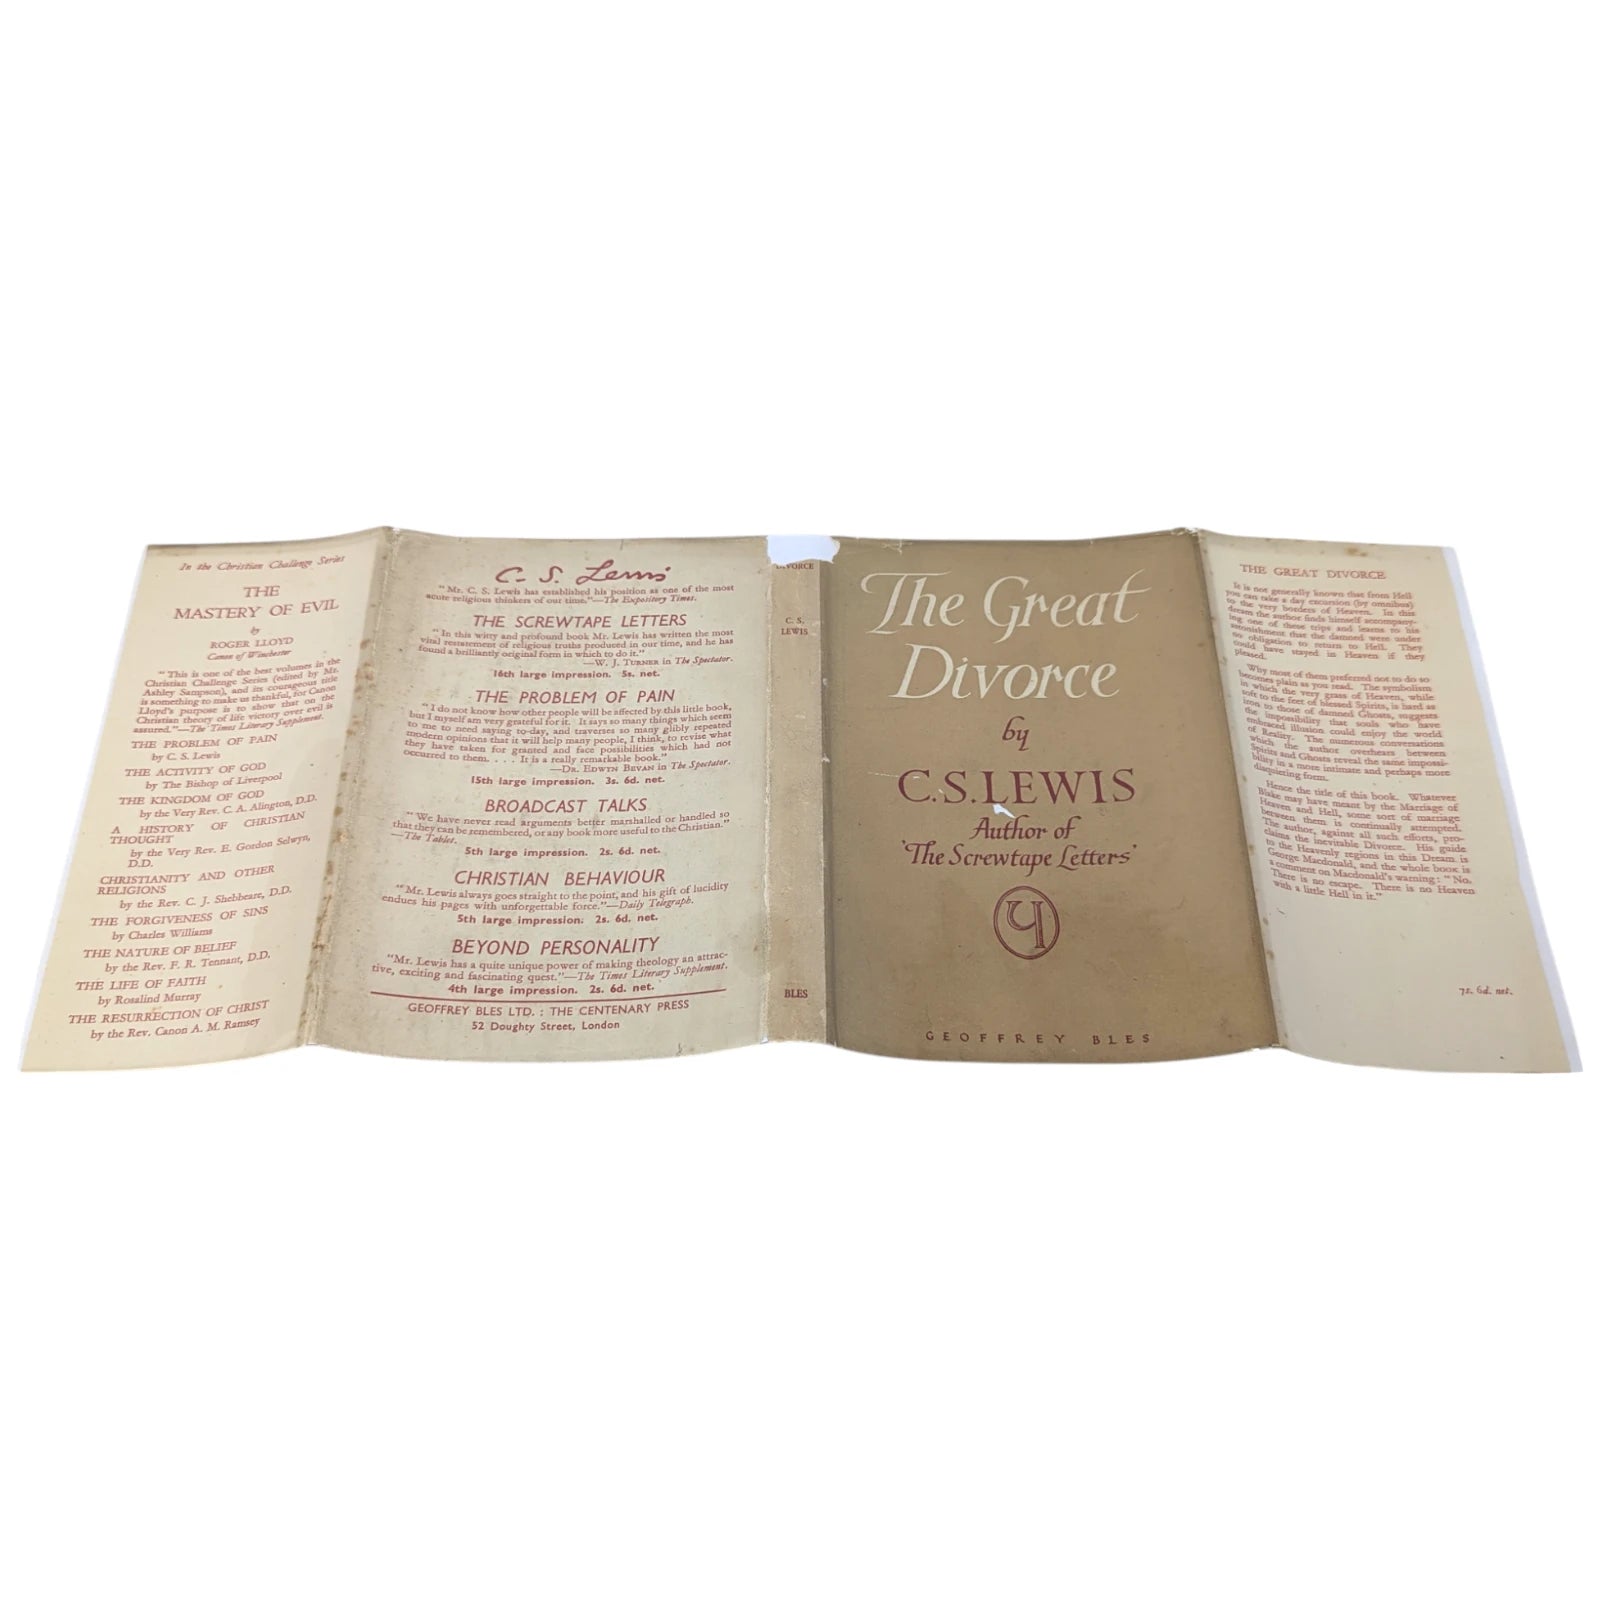 In the Christian Challenge Series
THE
MASTERY OF EVIL
by
ROGER LLOYD
Canon of Winchester
"This is one of the best volumes in the
Christian Challenge Series (edited by Mr.
Ashley Sampson), and its courageous title
is something to make us thankful, for Canon
Lloyd's purpose is to show that on the
Christian theory of life victory over evil is
assured."—The Times Literary Supplement.
THE PROBLEM OF PAIN
by C. S. Lewis
THE ACTIVITY OF GOD
by The Bishop of Liverpool
THE KINGDOM OF GOD
by the Very Rev. C. A. Alington, D.D.
A HISTORY OF CHRISTIAN
THOUGHT
by the Very Rev. E. Gordon Selwyn,
D.D.
CHRISTIANITY AND OTHER
RELIGIONS
by the Rev. C. J. Shebbeare, D.D.
THE FORGIVENESS OF SINS
by Charles Williams
THE NATURE OF BELIEF
by the Rev. F. R. Tennant, D.D.
THE LIFE OF FAITH
by Rosalind Murray
THE RESURRECTION OF CHRIST
by the Rev. Canon A. M. Ramsey
C. S. Lewis
"Mr. C. S. Lewis has established his position as one of the most
acute religious thinkers of our time."—The Expository Times.
THE SCREWTAPE LETTERS
"In this witty and profound book Mr. Lewis has written the most
vital restatement of religious truths produced in our time, and he has
found a brilliantly original form in which to do it."
—W. J. TURNER in The Spectator.
16th large impression. 5s. net.
THE PROBLEM OF PAIN
"I do not know how other people will be affected by this little book,
but I myself am very grateful for it. It says so many things which seem
to me to need saying to-day, and traverses so many glibly repeated
modern opinions that it will help many people, I think, to revise what
they have taken for granted and face possibilities which had not
occurred to them. . . . It is a really remarkable book."
—DR. EDWYN BEVAN in The Spectator.
15th large impression. 3s. 6d. net.
BROADCAST TALKS
"We have never read arguments better marshalled or handled so
that they can be remembered, or any book more useful to the Christian."
—The Tablet.
5th large impression. 2s. 6d. net.
CHRISTIAN BEHAVIOUR
"Mr. Lewis always goes straight to the point, and his gift of lucidity
endues his pages with unforgettable force."—Daily Telegraph.
5th large impression. 2s. 6d. net.
BEYOND PERSONALITY
"Mr. Lewis has a quite unique power of making theology an attrac-
tive, exciting and fascinating quest."—The Times Literary Supplement.
4th large impression. 2s. 6d. net.
GEOFFREY BLES LTD. : THE CENTENARY PRESS
52 Doughty Street, London
DIVORCE
C. S.
LEWIS
BLES
The Great
Divorce
by
C.S.LEWIS
Author of
'The Screwtape Letters'
GEOFFREY BLES
THE GREAT DIVORCE
It is not generally known that from Hell
you can take a day excursion (by omnibus)
to the very borders of Heaven. In this
dream the author finds himself accompany-
ing one of these trips and learns to his
astonishment that the damned were under
no obligation to return to Hell. They
could have stayed in Heaven if they
pleased.
Why most of them preferred not to do so
becomes plain as you read. The symbolism
in which the very grass of Heaven, while
soft to the feet of blessed Spirits, is hard as
iron to those of damned Ghosts, suggests
the impossibility that souls who have
embraced illusion could enjoy the world
of Reality. The numerous conversations
which the author overhears between
Spirits and Ghosts reveal the same impossi-
bility in a more intimate and perhaps more
disquieting form.
Hence the title of this book. Whatever
Blake may have meant by the Marriage of
Heaven and Hell, some sort of marriage
between them is continually attempted.
The author, against all such efforts, pro-
claims the inevitable Divorce. His guide
to the Heavenly regions in this Dream is
George Macdonald, and the whole book is
a comment on Macdonald's warning: "No.
There is no escape. There is no Heaven
with a little Hell in it."
7s. 6d. net.